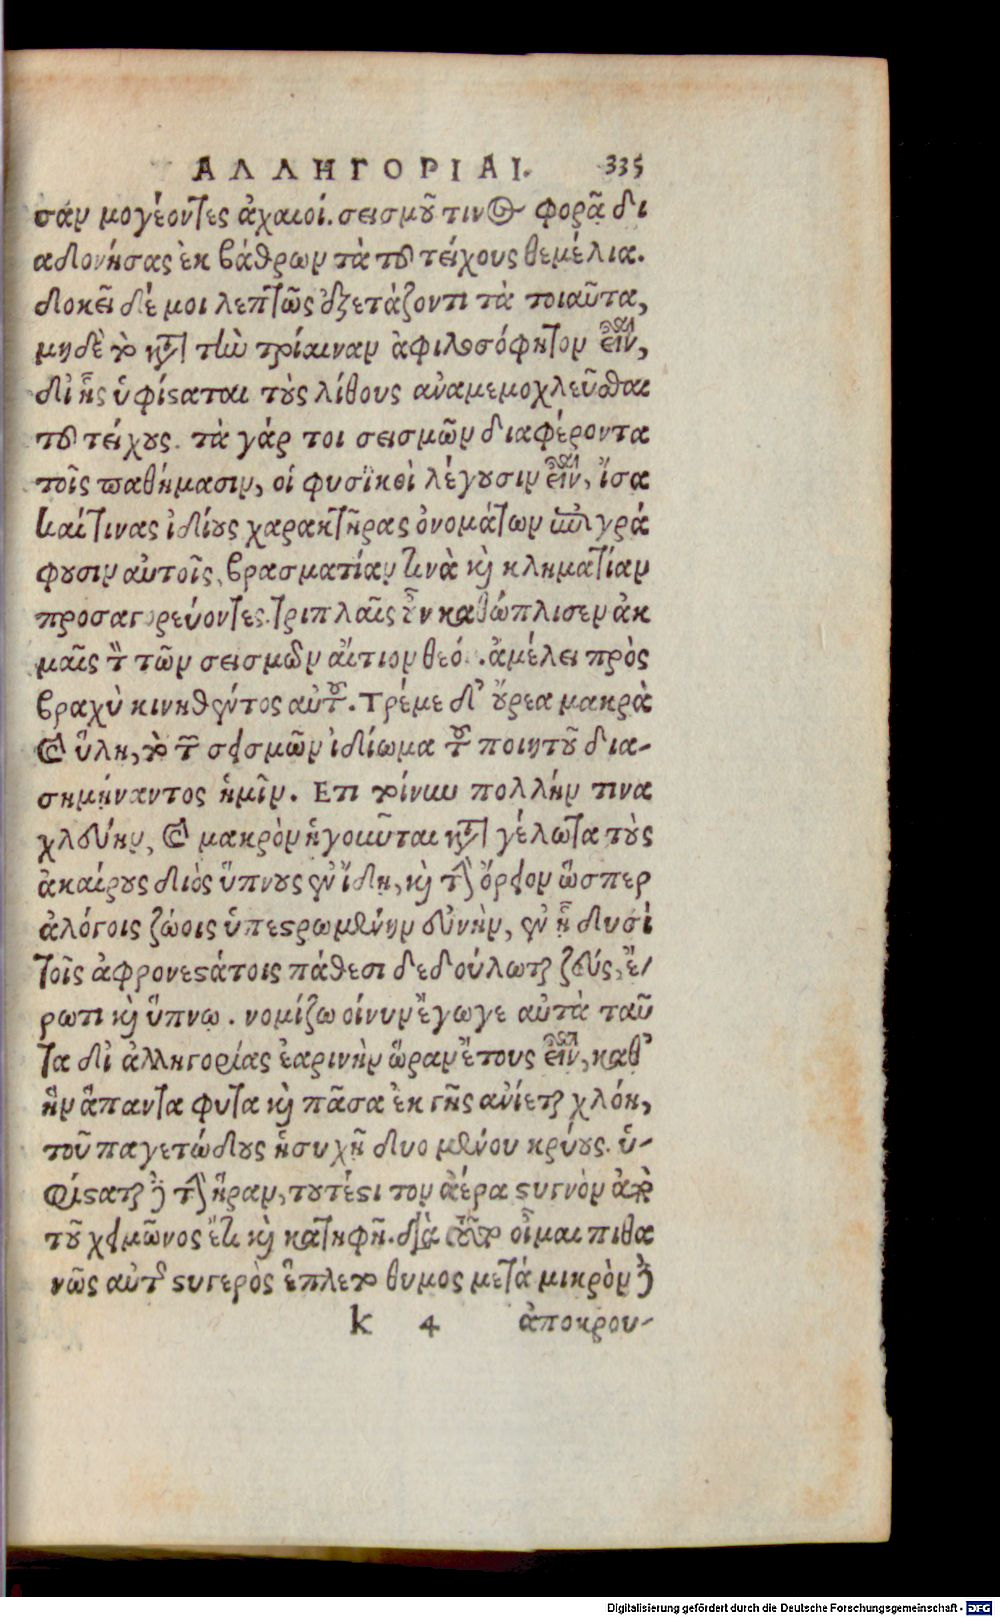 ΑΛΛΗΓΟΡΙΑΙ. 335
σαν μογέοντες ἀχαιοί. σεισμοῦ τινος φορᾷ δι
αδονήσας ἐκ βάθρων τὰ τοῦ τείχους θεμέλια.
δοκεῖ δέ μοι λεπτῶς ἐξετάζοντι τὰ τοιαῦτα,
μηδὲ τὸ κατὰ τὴν τρίαιναν ἀφιλοσόφητον εἶναι,
δι' ἧς ὑφίσαται τοὺς λίθους ἀναμεμοχλεῦσθαι
τοῦ τείχους. τὰ γάρ τοι σεισμῶν διαφέροντα
τοῖς παθήμασιν, οἱ φυσικοὶ λέγουσιν εἶναι, ἴσα
καί τινας ἰδίους χαρακτῆρας ὀνομάτων ἐπιγρά
φουσιν αὐτοῖς, βρασματίαν τινὰ καὶ κληματίαν
προσαγορεύοντες. τριπλαῖς οὖν καθώπλισεν ἀκ
μαῖς τὸν τῶν σεισμῶν αἴτιον θεόν. ἀμέλει πρὸς
βραχὺ κινηθέντος αὐτοῦ. Τρέμε δ' οὔρεα μακρὰ
καὶ ὕλη, τὸ τῶν σεισμῶν ἰδίωμα τοῦ ποιητοῦ δια-
σημήναντος ἡμῖν. Ετι τοίνυν πολλήν τινα
χλεύην, καὶ μακρὸν ἡγοῦνται κατὰ γέλωτα τοὺς
ἀκαίρους διὸς ὕπνους ἐν ἴδῃ, καὶ τὴν ὄρειον ὥσπερ
ἀλόγοις ζώοις ὑπεσρωμένην εὐνὴν, ἐν ᾗ δυσὶ
τοῖς ἀφρονεσάτοις πάθεσι δεδούλωται ζεύς, ἔ-
ρωτι καὶ ὕπνῳ. νομίζω οίνυν ἔγωγε αὐτὰ ταῦ
τα δι' ἀλληγορίας ἐαρινὴν ὥραν ἔτους εἶναι, καθ'
ἣν ἅπαντα φυτα καὶ πᾶσα ἐκ γῆς ἀνίεται χλόη,
τοῦ παγετώδους ἡσυχῇ λυομένου κρύους. ὑ-
φίσαται δὲ τὴν ἥραν, τουτέσι τον ἀέρα συγνὸν ἀπὸ
τοῦ χειμῶνος ἔτι καὶ κατηφῆ. διὰ τοῦτο οἶμαι πιθα
νῶς αὐτῷ συγερὸς ἔπλετο θυμος μετά μικρὸν δὲ
k 4 ἀποκρου-
Digitalisierung gefördert durch die Deutsche Forschungsgemeinschaft - DFG